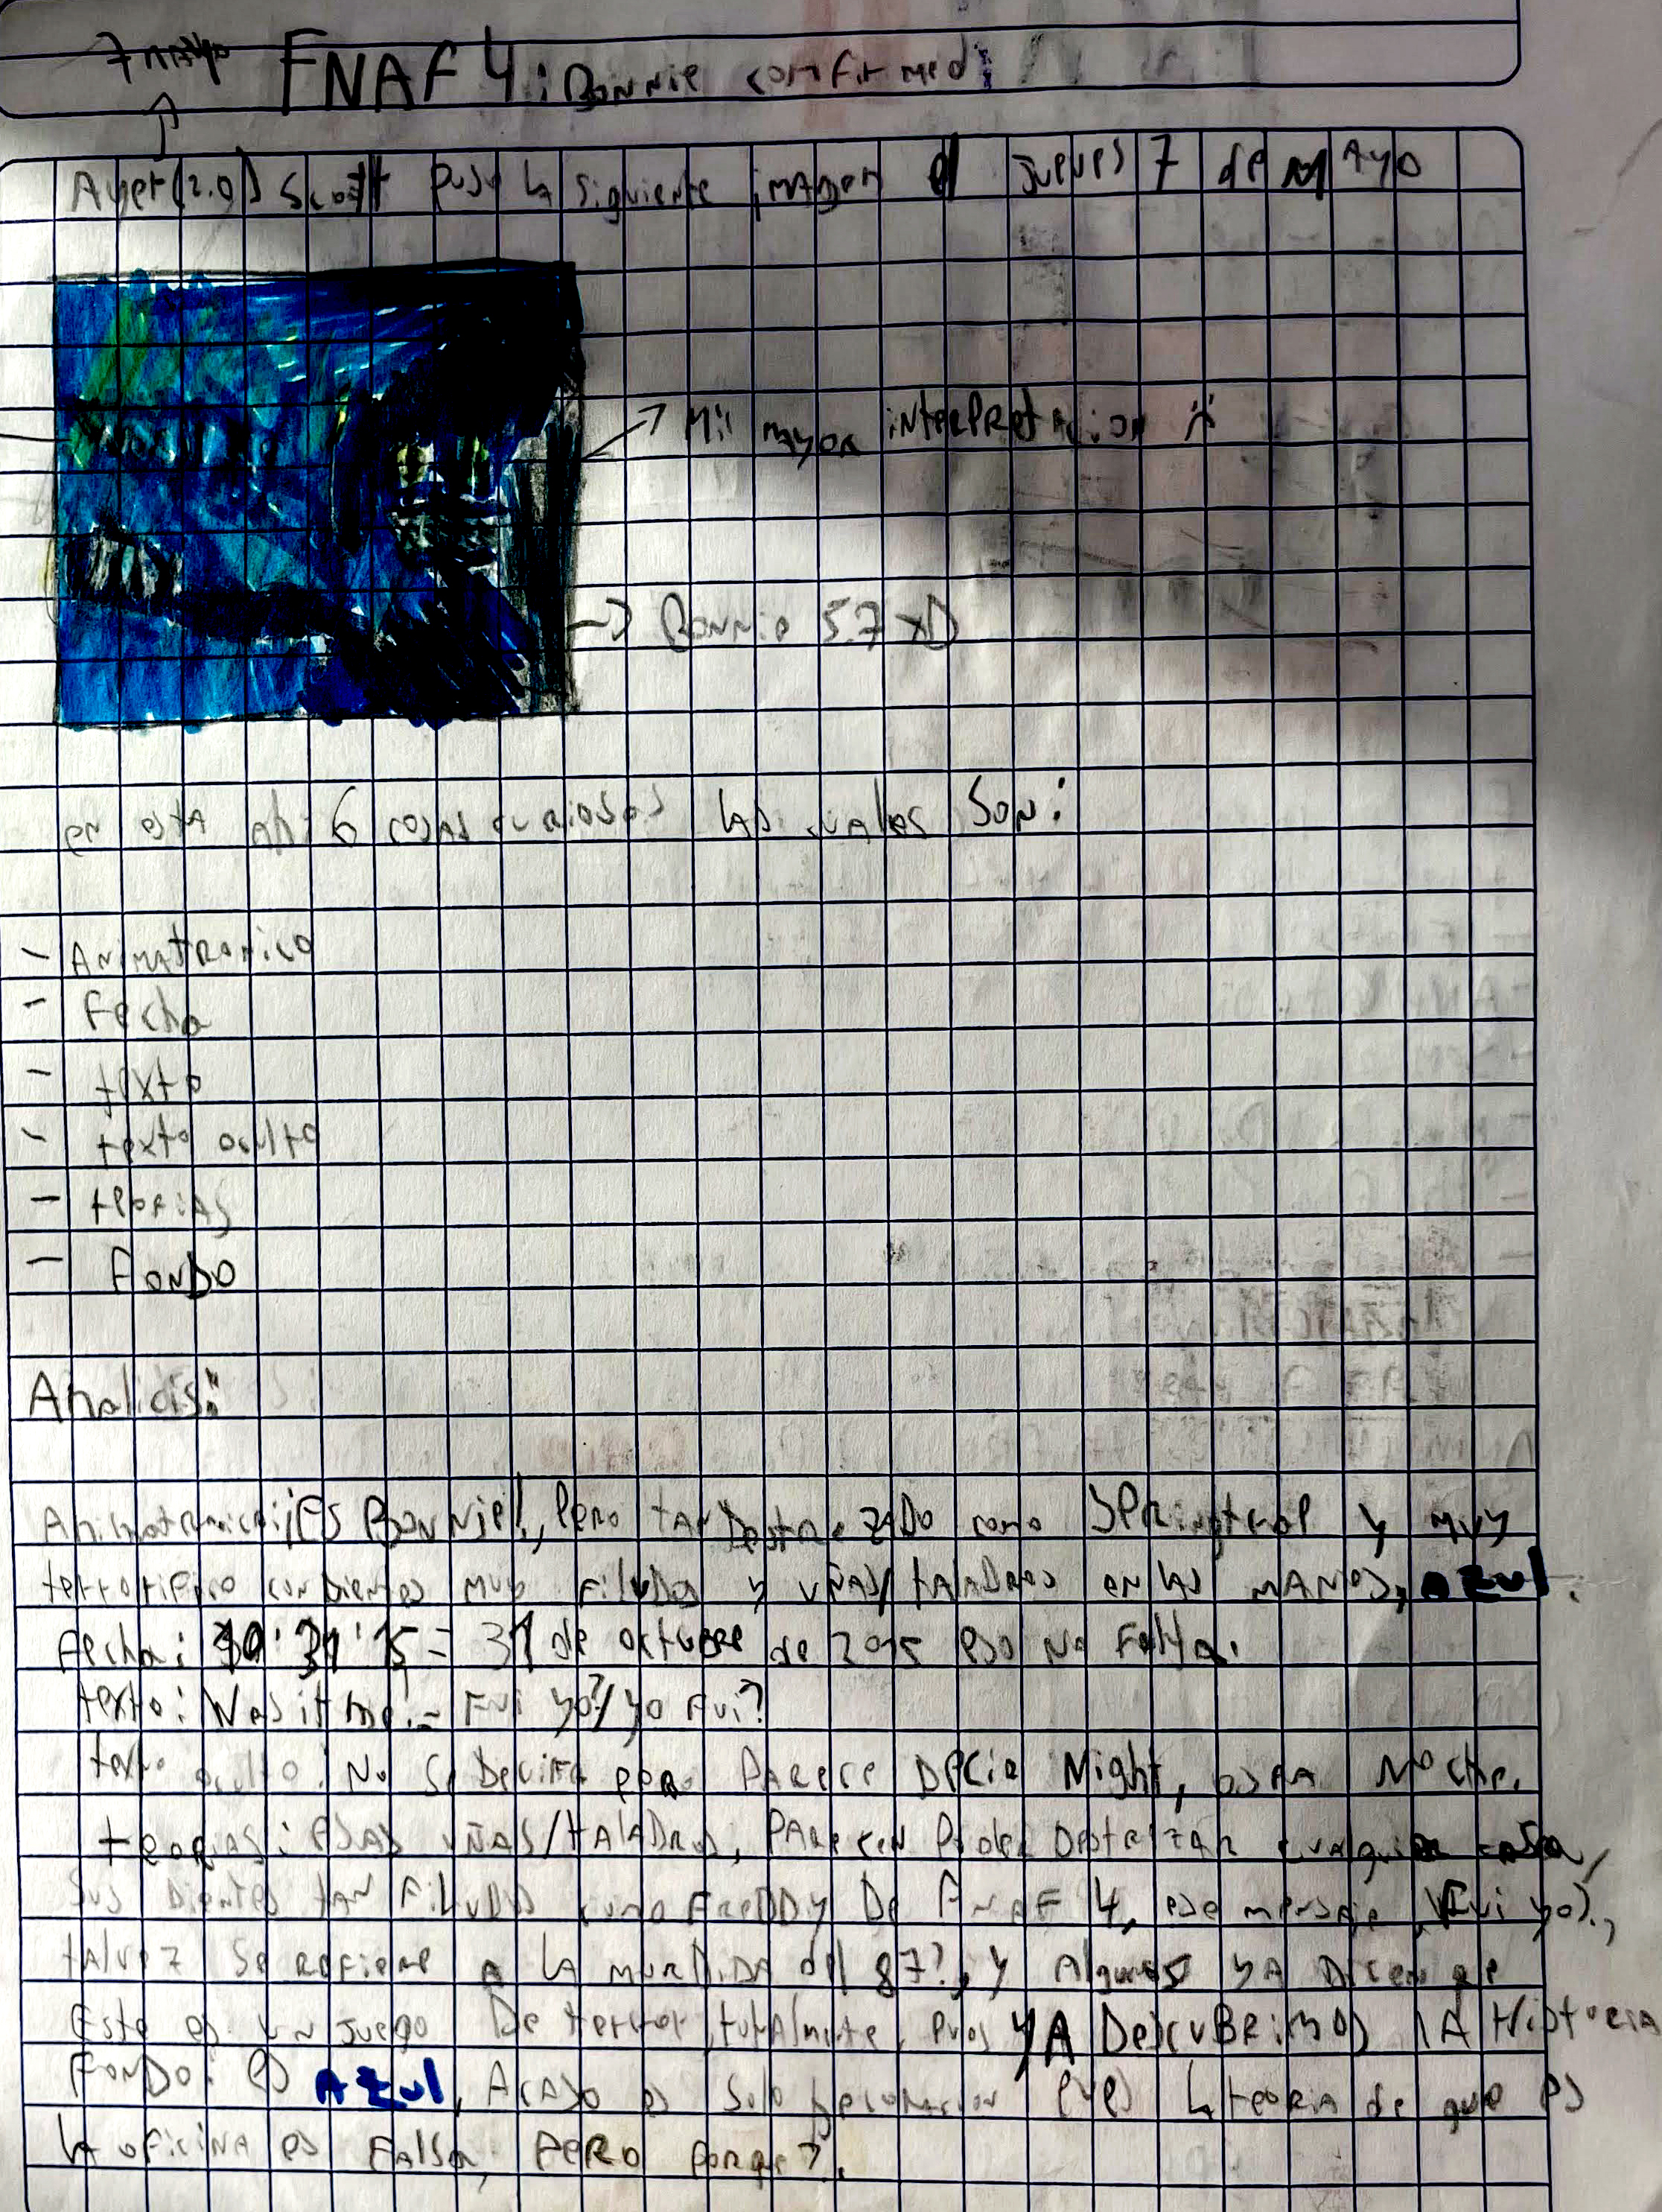 7 mayo
FNAF 4: Bonnie comfirmed:
Ayer (2.0) Scott puso la siguiente imagen el jueves 7 de mayo
Mi mayor interpretacion
Bonnie 5.7 xD
en esta ahi 6 cosas curiosas las cuales son:
- Animatronico
- Fecha
- texto
- texto oculto
- teorias
- Fondo
Analicis:
Animatronico: ¡¡ES Bonnie!!, Pero tan Destrozado como Springtrap y muy
terrorifico con Dientes muy Filudos y uñas/taladros en las manos, azul.
Fecha: 10 31 15 = 31 de octubre de 2015 eso no Falta.
texto: Was it me? = Fui yo?/yo Fui?
texto oculto: No se Decifra pero Parece Decir Night, osea Noche.
teorias: ESAS uñas/taladros, Parecen Poder Destrizar cualquier cosa,
Sus Dientes tan Filudos como Freddy De Fnaf 4, ese mensaje (Fui yo).,
talvez Se refiere a la mordida del 87?, y Algunos ya Dicen que
Este es un juego De terror totalmente, pues YA Descubrimos la Historia
Fondo: es azul, Acaso es Solo decoracion es la teoria de que es
la oficina es Falsa, PERO porque?.